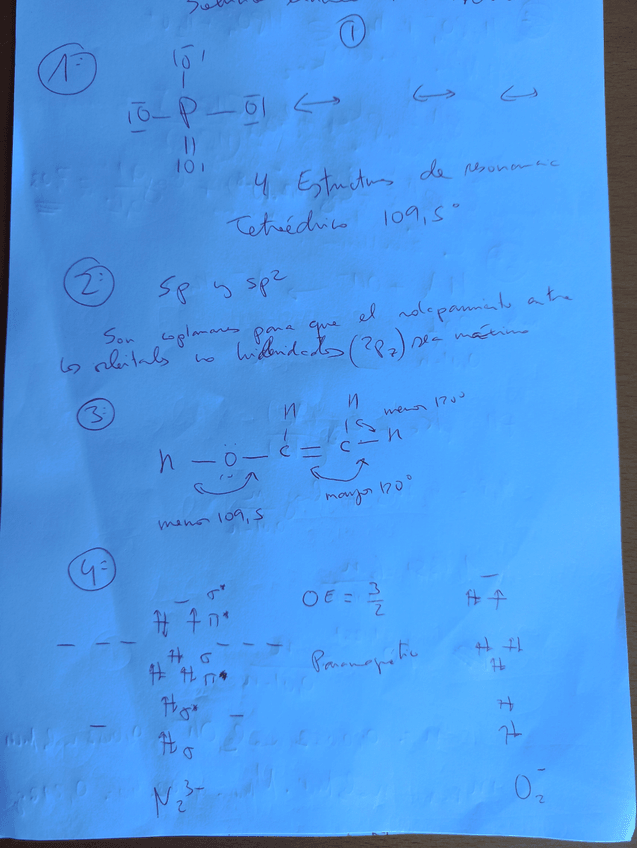 ①
1:
|O̅| 
|O̅ — P — O̅| ↔ ↔ ↔
||
|O|
4 Estructuras de resonancia
Tetraédrico 109,5°
2: sp y sp²
Son coplanares para que el solapamiento entre
los orbitales no hibridados (2Pz) sea máximo
3:
H H menor 120°
H — Ö — C = C — H
menor 109,5 mayor 120°
4=
σ* OE = 3/2
π*
σ Paramagnético
π*
σ*
σ
N₂³⁻ O₂⁻